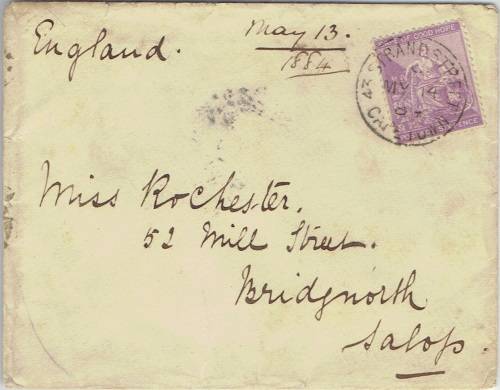 England.
May 13.
1884
OF GOOD HOPE
43 STRAND STREET
MY 14
CAPE TOWN
PENCE
Miss Rochester.
52 Mill Street.
Bridgnorth
Salop.